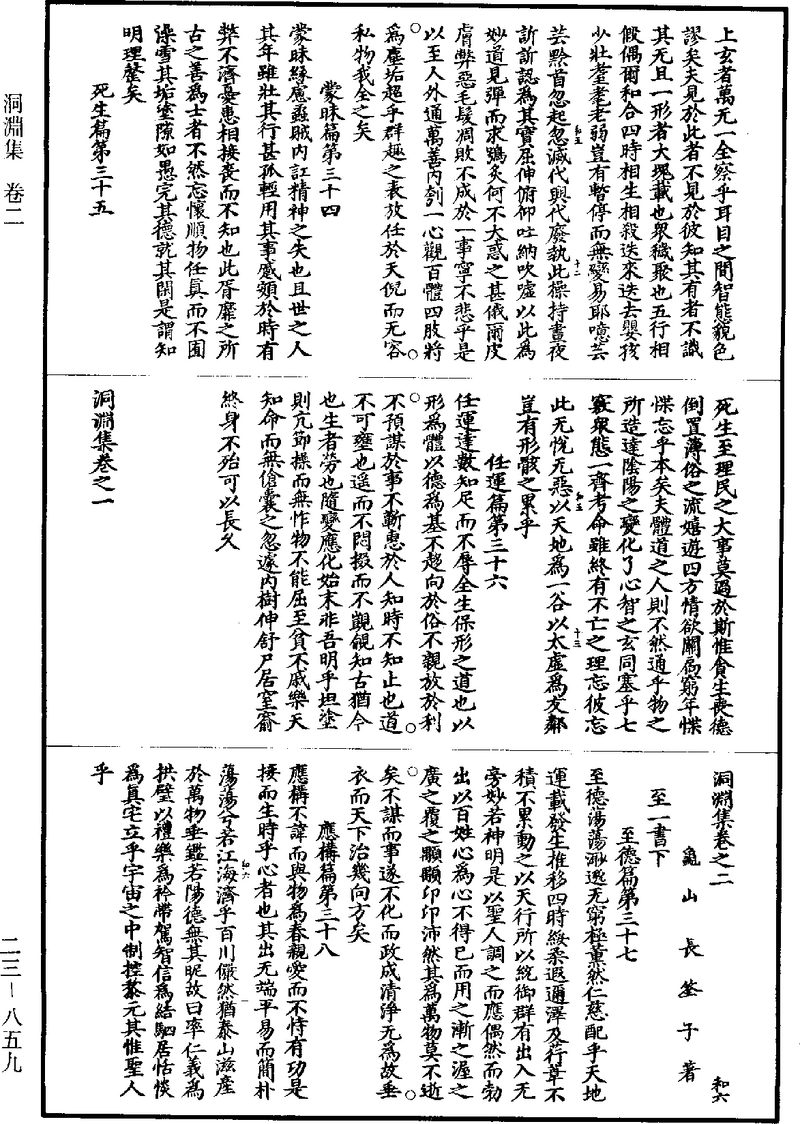 上玄者萬无一全察乎耳目之間智態貌色
謬矣夫見於此者不見於彼知其有者不識
其无且一形者大塊載也衆穢聚也五行相
假偶爾和合四時相生相殺迭來迭去嬰孩
少壯耆耄老弱豈有暫停而無變易耶噫芸
芸黔首忽起忽滅代興代廢執此操持晝夜
訢訢認為其寶屈伸俯仰吐納吹噓以此為
妙道見彈而求鴞炙何不大惑之甚俄爾皮
膚弊惡毛髮凋敗不成於一事寧不悲乎是
以至人外通萬善內刳一心觀百體四肢將
為塵垢超乎群趣之表放任於天倪而无容
私物我全之矣
蒙昧篇第三十四
蒙昧緣慮蟊賊內訌精神之失也且世之人
其年雖壯其行甚孤輕用其事慼頞於時有
弊不濟憂患相接喪而不知也此胥靡之所
古之善為士者不然忘懷順物任真而不囿
澡雪其垢塗隙如愚完其德就其閑是謂知
明理盡矣
死生篇第三十五
死生至理民之大事莫過於斯惟貪生喪德
倒置薄俗之流嬉遊四方情欲關為窮年惵
惵忘乎本矣夫體道之人則不然通乎物之
所造達陰陽之變化了心智之玄同塞乎七
竅衆態一齊考命雖終有不亡之理忘彼忘
此无悅无惡以天地為一谷以太虛為友鄰
豈有形骸之累乎
任運篇第三十六
任運達數知足而不辱全生保形之道也以
形為體以德為基不趨向於俗不親放於利
不預謀於事不蘄惠於人知時不知止也道
不可壅也遥而不悶掇而不覬覦知古猶今
也生者勞也隨變應化始末非吾明乎坦塗
則亢節操而無怍物不能屈至貧不戚樂天
知命而無傖囊之忽遽內樹伸舒尸居室齋
終身不殆可以長久
洞淵集卷之一
洞淵集卷之二
龜山長筌子著
和六
至一書下
至德篇第三十七
至德蕩蕩渺邈无窮極薰然仁慈配乎天地
運載發生推移四時綏柔遐邇澤及行葦不
積不累動之以天行所以統御群有出入无
旁妙若神明是以聖人調之而應偶然而勃
出以百姓心為心不得已而用之漸之渥之
廣之覆之顒顒卬卬沛然其為萬物莫不逝
矣不謀而事遂不化而政成清淨无為故垂
衣而天下治幾向方矣
應構篇第三十八
應構不諱而與物為春親愛而不恃有功是
接而生時乎心者也其出无端平易而簡朴
蕩蕩兮若江海濟乎百川儼然猶泰山滋產
於萬物垂鑑若陽德無其昵故曰率仁義為
拱璧以禮樂為衿帶駕智信為結駟居恬惔
為真宅立乎宇宙之中制控黎元其惟聖人
乎
洞淵集 卷二
二三－八五九